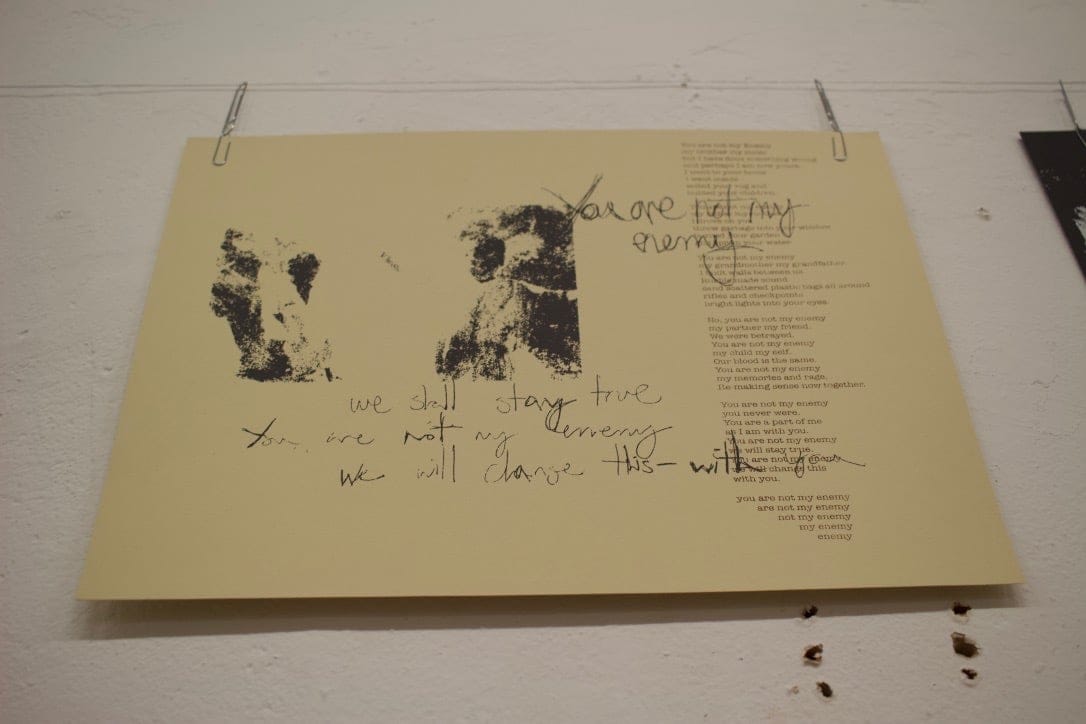 You are not my
enemy
we shall stay true
You are not my enemy
we will change this - with you
You are not my Enemy
my brother my sister
but I have done something wrong
and perhaps I am now yours.
I went to your home
I went inside
soiled your rug and
your children.
throw garbage into your window
your garden
your water
You are not my enemy
my grandmother my grandfather.
I built walls between us
made sound
sand scattered plastic bags all around
rifles and checkpoints
bright lights into your eyes.
No, you are not my enemy
my partner my friend.
We were betrayed.
You are not my enemy
my child my self.
Our blood is the same.
You are not my enemy
my memories and rage.
Re-making sense now together.
You are not my enemy
you never were.
You are a part of me
as I am with you.
You are not my enemy
we will stay true.
You are not my enemy
we will change this
with you.
you are not my enemy
are not my enemy
not my enemy
my enemy
enemy